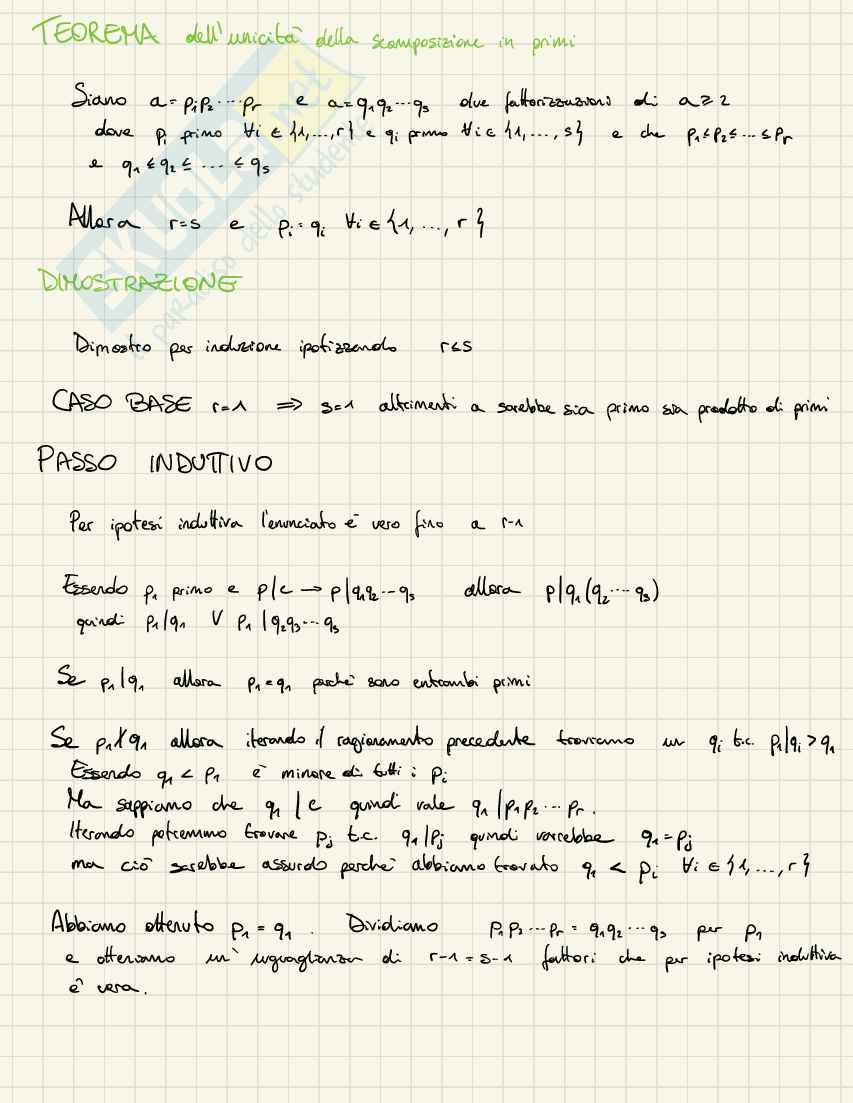 TEOREMA dell'unicità della scomposizione in primi
Siano a = p₁p₂ ... pᵣ e a = q₁q₂ ... qₛ due fattorizzazioni di a ≥ 2
dove pᵢ primo ∀i ∈ {1,...,r} e qᵢ primo ∀i ∈ {1,...,s} e che p₁ ≤ p₂ ≤ ... ≤ pᵣ
e q₁ ≤ q₂ ≤ ... ≤ qₛ
Allora r=s e pᵢ = qᵢ ∀i ∈ {1, ..., r}
DIMOSTRAZIONE
Dimostro per induzione ipotizzando r≤s
CASO BASE r=1 ⟹ s=1 altrimenti a sarebbe sia primo sia prodotto di primi
PASSO INDUTTIVO
Per ipotesi induttiva l'enunciato è vero fino a r-1
Essendo p₁ primo e p|c → p|q₁q₂...qₛ allora p|q₁(q₂...qₛ)
quindi p₁|q₁ ∨ p₁|q₂q₃...qₛ
Se p₁|q₁ allora p₁=q₁ perchè sono entrambi primi
Se p₁∤q₁ allora iterando il ragionamento precedente troviamo un qᵢ t.c. p₁|qᵢ > q₁
Essendo q₁ < p₁ è minore di tutti i pᵢ
Ma sappiamo che q₁ | c quindi vale q₁ | p₁p₂...pᵣ.
Iterando potremmo trovare pⱼ t.c. q₁|pⱼ quindi varrebbe q₁=pⱼ
ma ciò sarebbe assurdo perchè abbiamo trovato q₁ < pᵢ ∀i ∈ {1,...,r}
Abbiamo ottenuto p₁ = q₁. Dividiamo p₁p₂...pᵣ = q₁q₂...qₛ per p₁
e otteniamo un' uguaglianza di r-1=s-1 fattori che per ipotesi induttiva
è vera.
SKUOLA.net
il paradiso dello studente